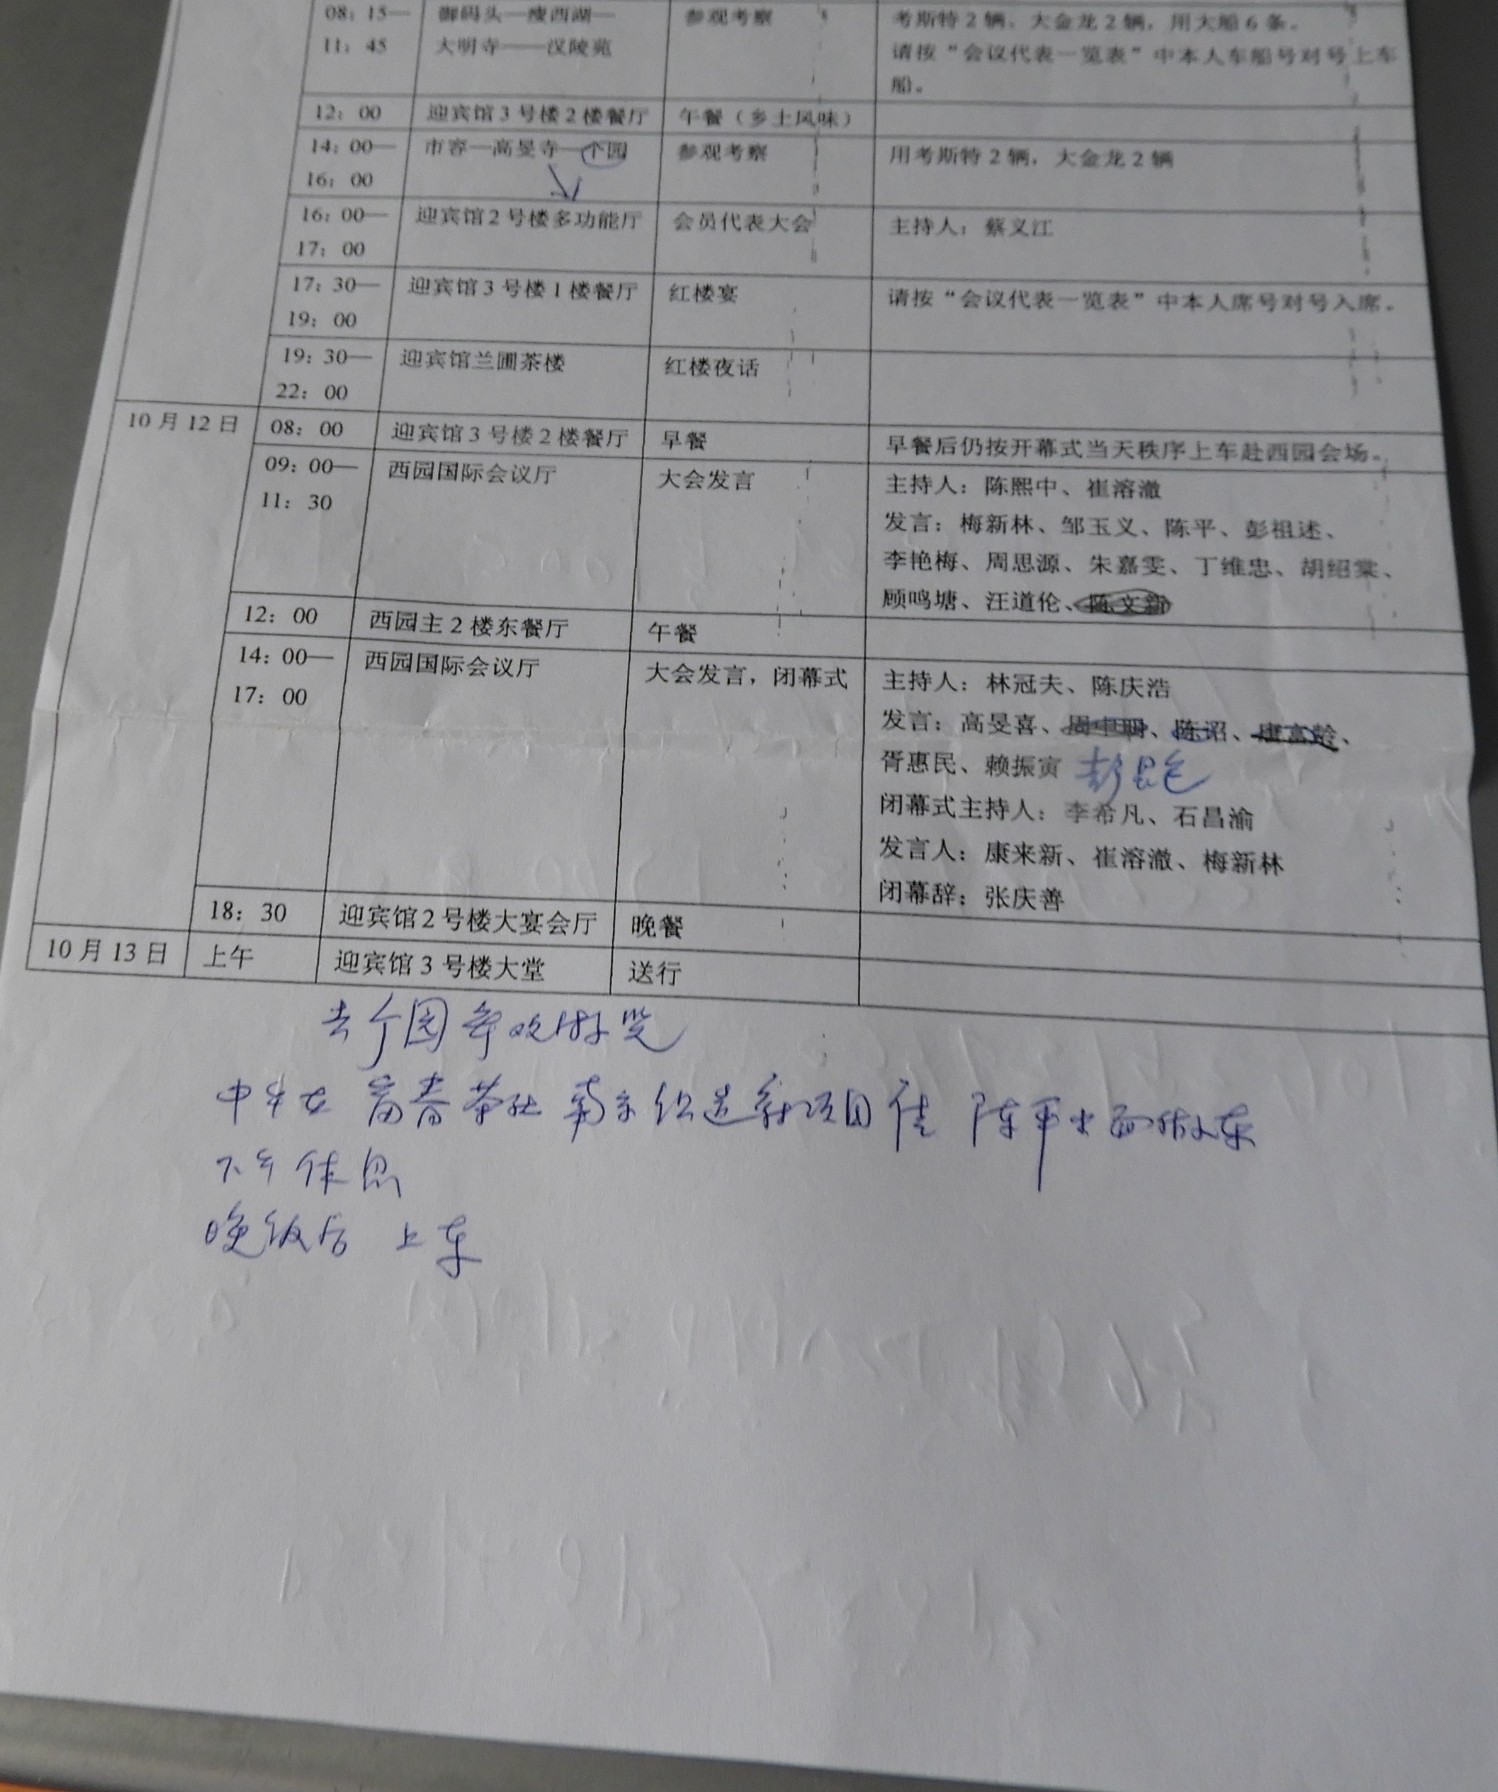 08：15— 御码头—瘦西湖— 参观考察 考斯特2辆，大金龙2辆，用大船6条。
11：45 大明寺——汉陵苑 请按“会议代表一览表”中本人车船号对号上车
船。
12：00 迎宾馆3号楼2楼餐厅 午餐（乡土风味）
14：00— 市容—高旻寺—个园 参观考察 用考斯特2辆，大金龙2辆
16：00
16：00— 迎宾馆2号楼多功能厅 会员代表大会 主持人：蔡义江
17：00
17：30— 迎宾馆3号楼1楼餐厅 红楼宴 请按“会议代表一览表”中本人席号对号入席。
19：00
19：30— 迎宾馆兰圃茶楼 红楼夜话
22：00
10月12日 08：00 迎宾馆3号楼2楼餐厅 早餐 早餐后仍按开幕式当天秩序上车赴西园会场。
09：00— 西园国际会议厅 大会发言 主持人：陈熙中、崔溶澈
11：30 发言：梅新林、邹玉义、陈平、彭祖述、
李艳梅、周思源、朱嘉雯、丁维忠、胡绍棠、
顾鸣塘、汪道伦、陈文新
12：00 西园主2楼东餐厅 午餐
14：00— 西园国际会议厅 大会发言，闭幕式 主持人：林冠夫、陈庆浩
17：00 发言：高旻喜、周中明、陈诏、唐富龄、
胥惠民、赖振寅 彭昆仑
闭幕式主持人：李希凡、石昌渝
发言人：康来新、崔溶澈、梅新林
闭幕辞：张庆善
18：30 迎宾馆2号楼大宴会厅 晚餐
10月13日 上午 迎宾馆3号楼大堂 送行
去个园参观游览
中午在富春茶社 南京织造 项目 陈平出面做东
下午休息
晚饭后 上车